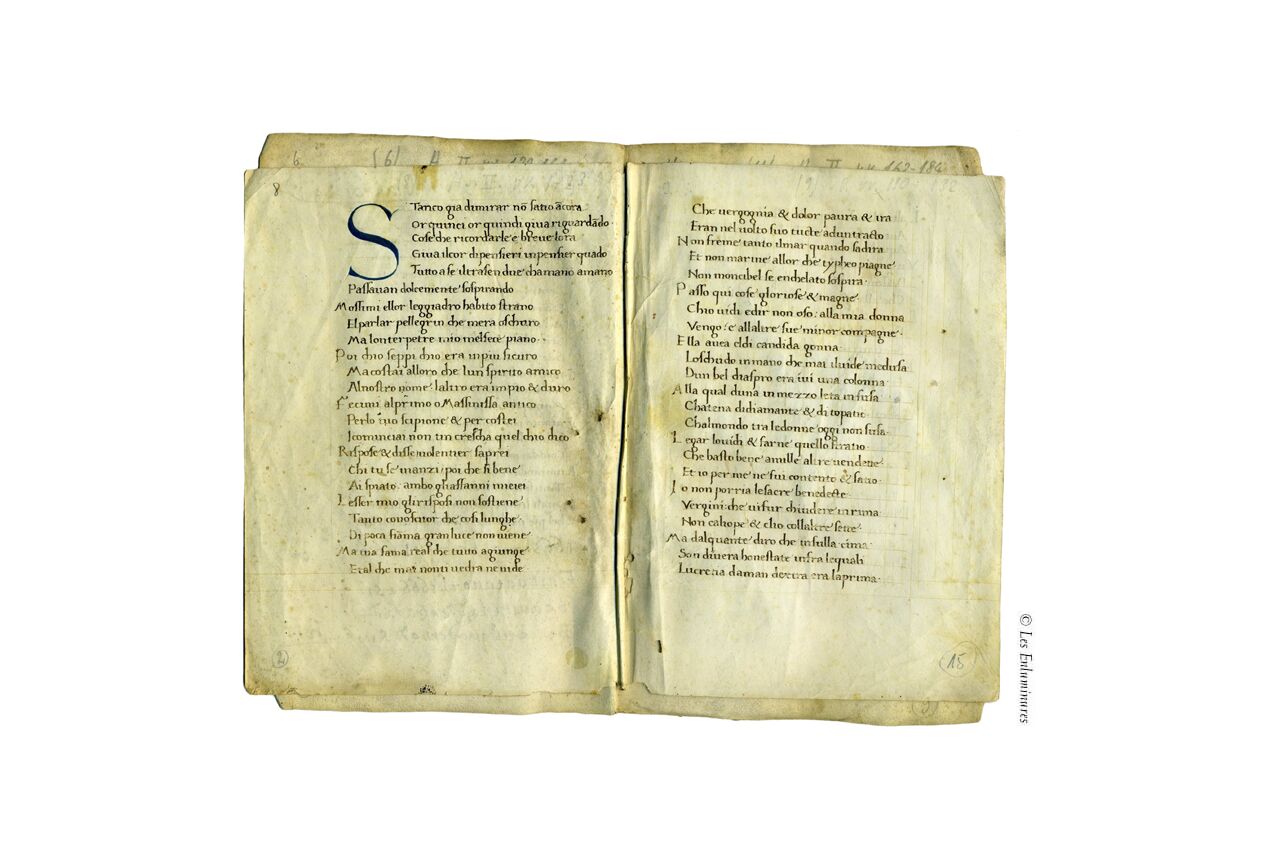 6
(6) A II
8
STanco gia dimirar nõ satio ãcora
Or quinci or quindi giua riguardãdo
Cose che ricordarle e breue lora
Giua ilcor dipensieri inpensier quãdo
Tutto a se iltrasen due cha mano a mano
Passauan dolcemente sospirando
Mossimi ellor leggiadro habito strano
El parlar pellegrin che mera oschuro
Ma lonterpetre mio melfece piano
Poi chio seppi chio era inpiu sicuro
Ma costai alloro che lun spirito amico
Al nostro nome laltro era impio & duro
Fecimi alprimo o Massinissa antico
Perlo tuo scipione & per costei
Icominciai non tincrescha quel chio dico
Rispose & disse uolentier saprei
Chi tu se inanzi poi che si bene
Ai spiato ambo gliaffanni miei
Lesser mio gli risposi non sostiene
Tanto conoscitor che cosi lunghe
Di poca fiãma gran luce non uiene
Ma tua fama real che tutto agiunge
Et al che mai non ti uedra ne uide
2
162-184
(9)
Che uergognia & dolor paura & ira
Eran nel uolto suo tucte aduntracto
Non freme tanto ilmar quando sadira
Et non marine allor che typheo piagne
Non moncibel se enchelato sospira
Passo qui cose gloriose & magne
Chio uidi e dir non oso: alla mia donna
Vengo: e allaltre sue minor compagne
Ella auea el di candida gonna
Loschudo in mano che mal iluide medusa
Dun bel diaspro era iui una colonna
Alla qual duna in mezzo leta infusa
Chatena didiamante & di topatio
Chalmondo tra ledonne oggi non susa
Legar louidi & farne quello stratio
Che basto bene amille altre uendette
Et io per me ne fui contento & satio
Io non porria lesacre benedecte
Vergini che ui fur chiudere in rima
Non caliope & clio collaltre sette
Ma dalquante diro che insulla cima
Son diuera honestate infra lequali
Lucretia daman dextra era laprima
15
(3)
© Les Enluminures